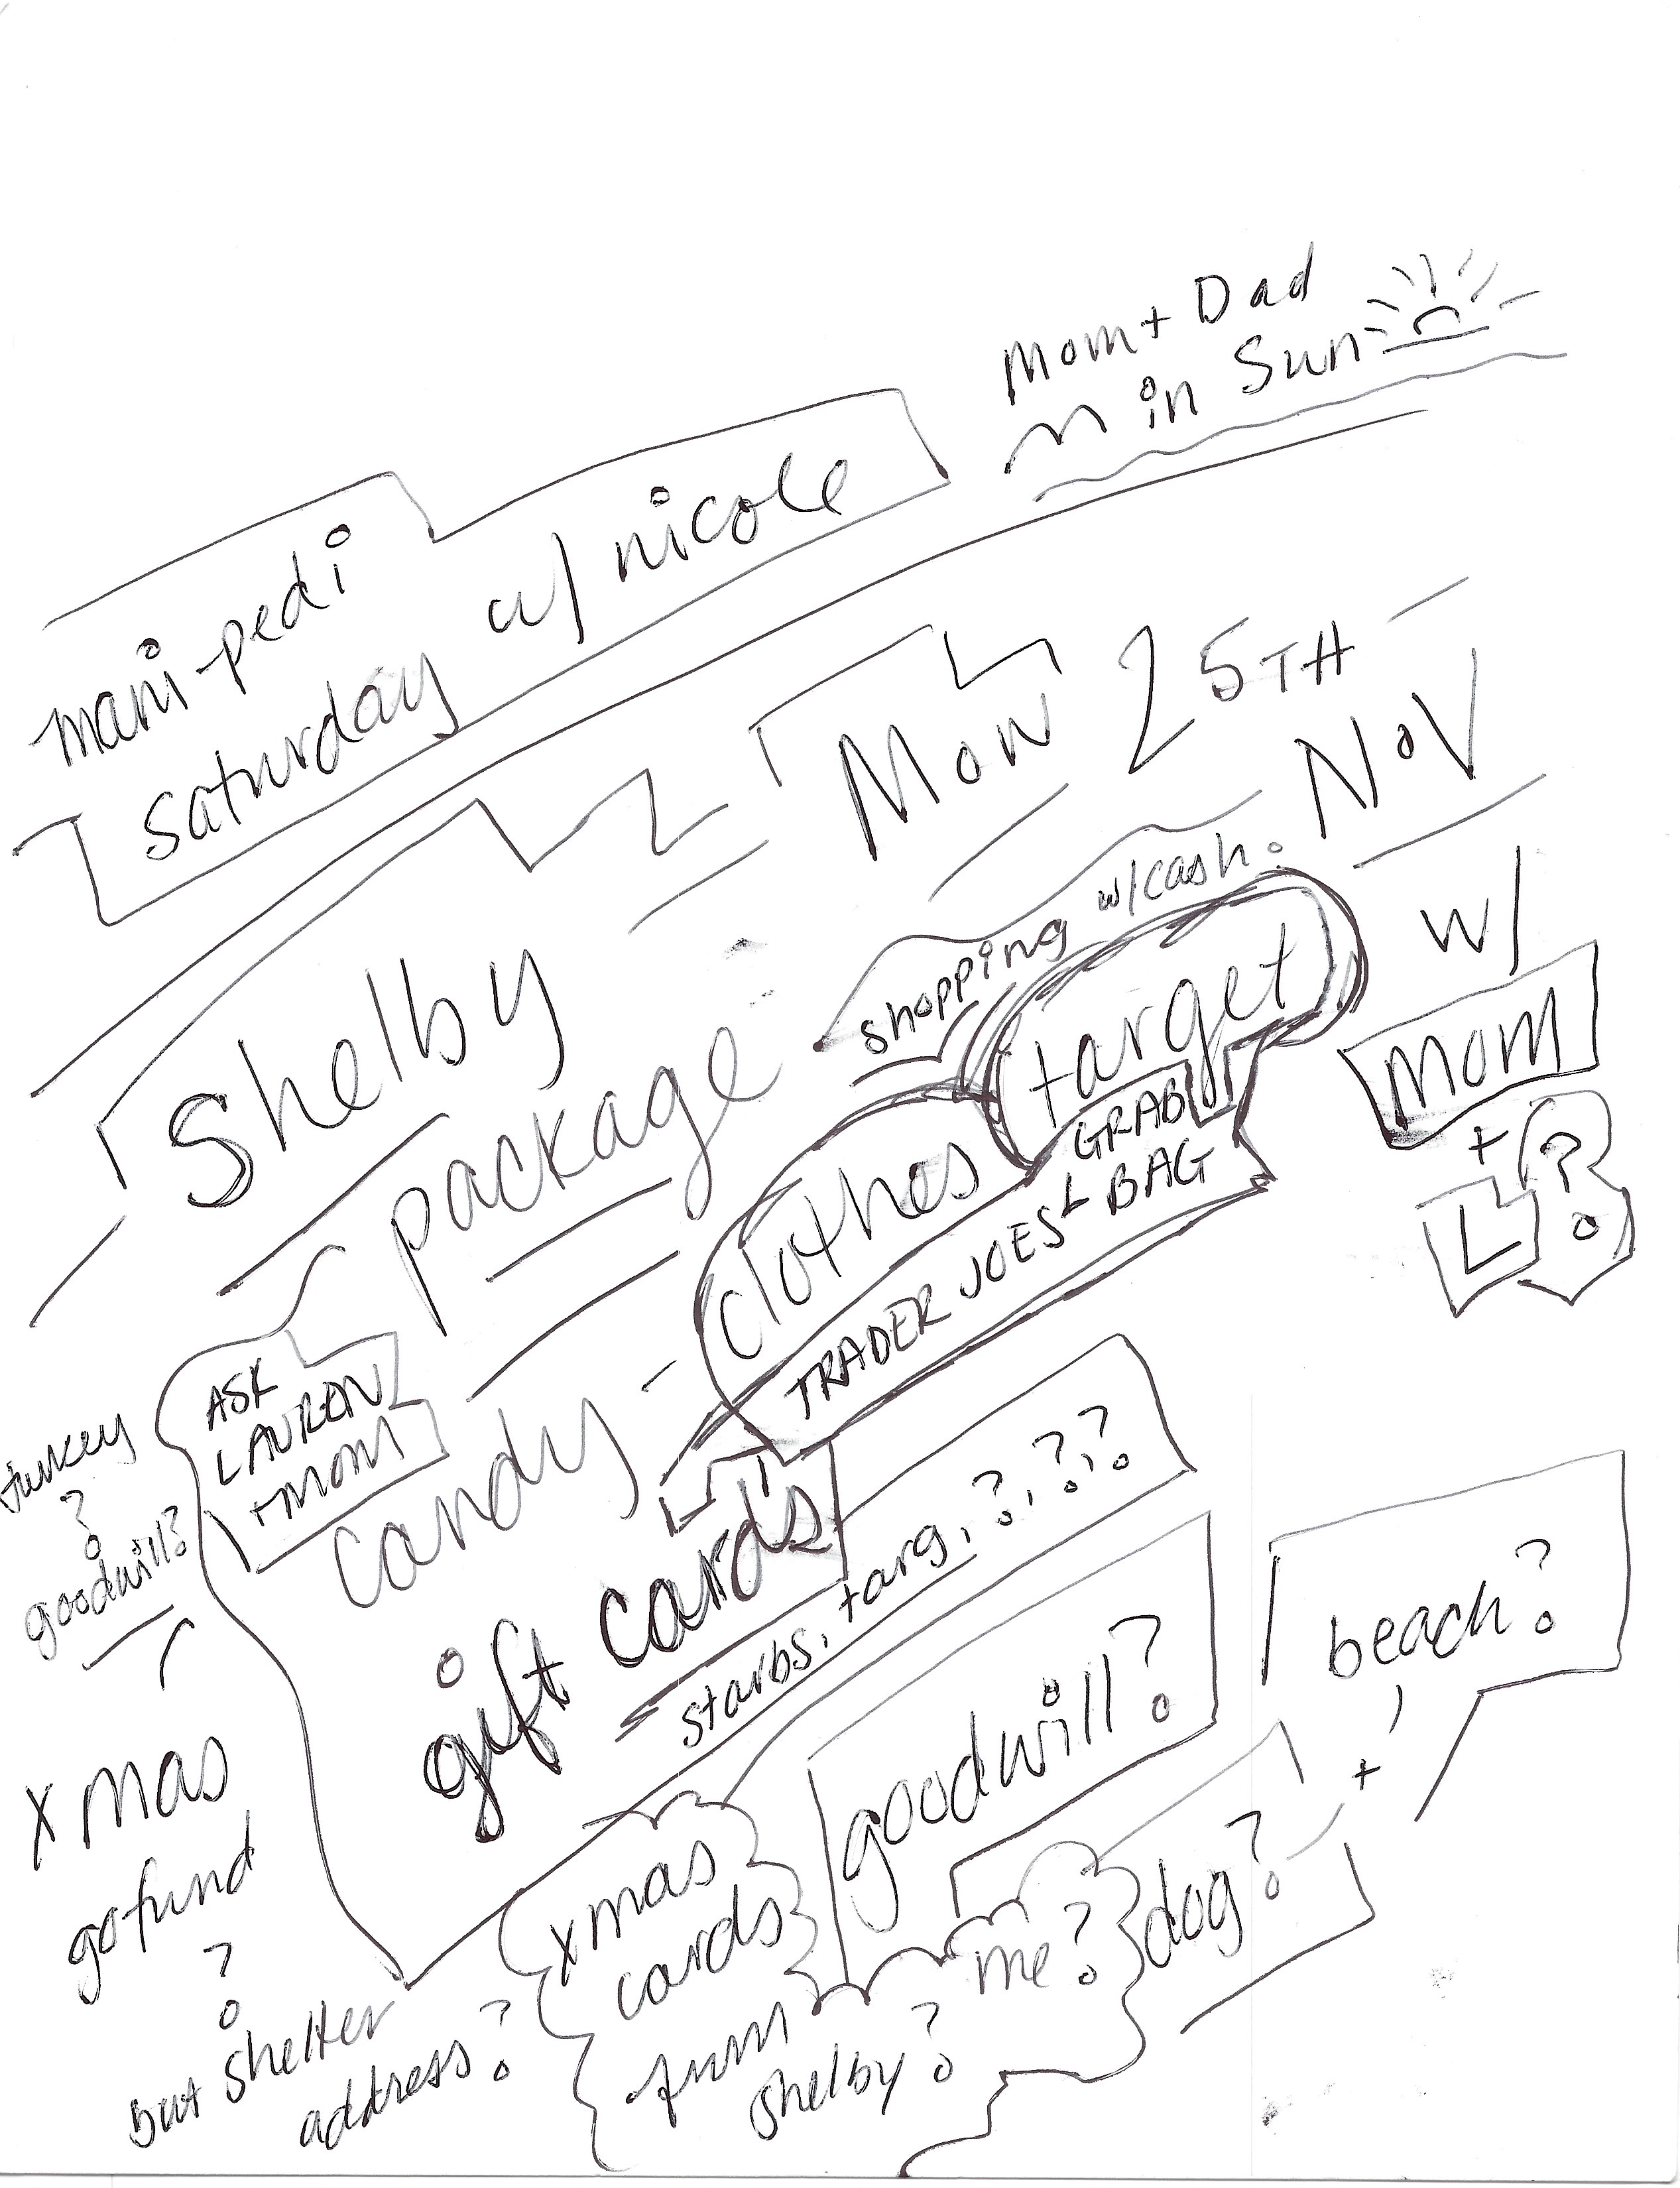 Mom + Dad
in Sun
mani-pedi
saturday w/ nicole
Mon 25TH
Nov
w/
Mom
+ L ?
Shelby
package
shopping w/cash.
target
clothes
GRAB
BAG
TRADER JOES
ASK
LAUREN
+ MOM
candy -
gift cards
starbs, targ, ?, ?, ?
turkey
?
goodwill?
xmas
gofund
?
but shelter
address?
xmas
cards
from
shelby?
me?
goodwill?
dog?
+
beach?